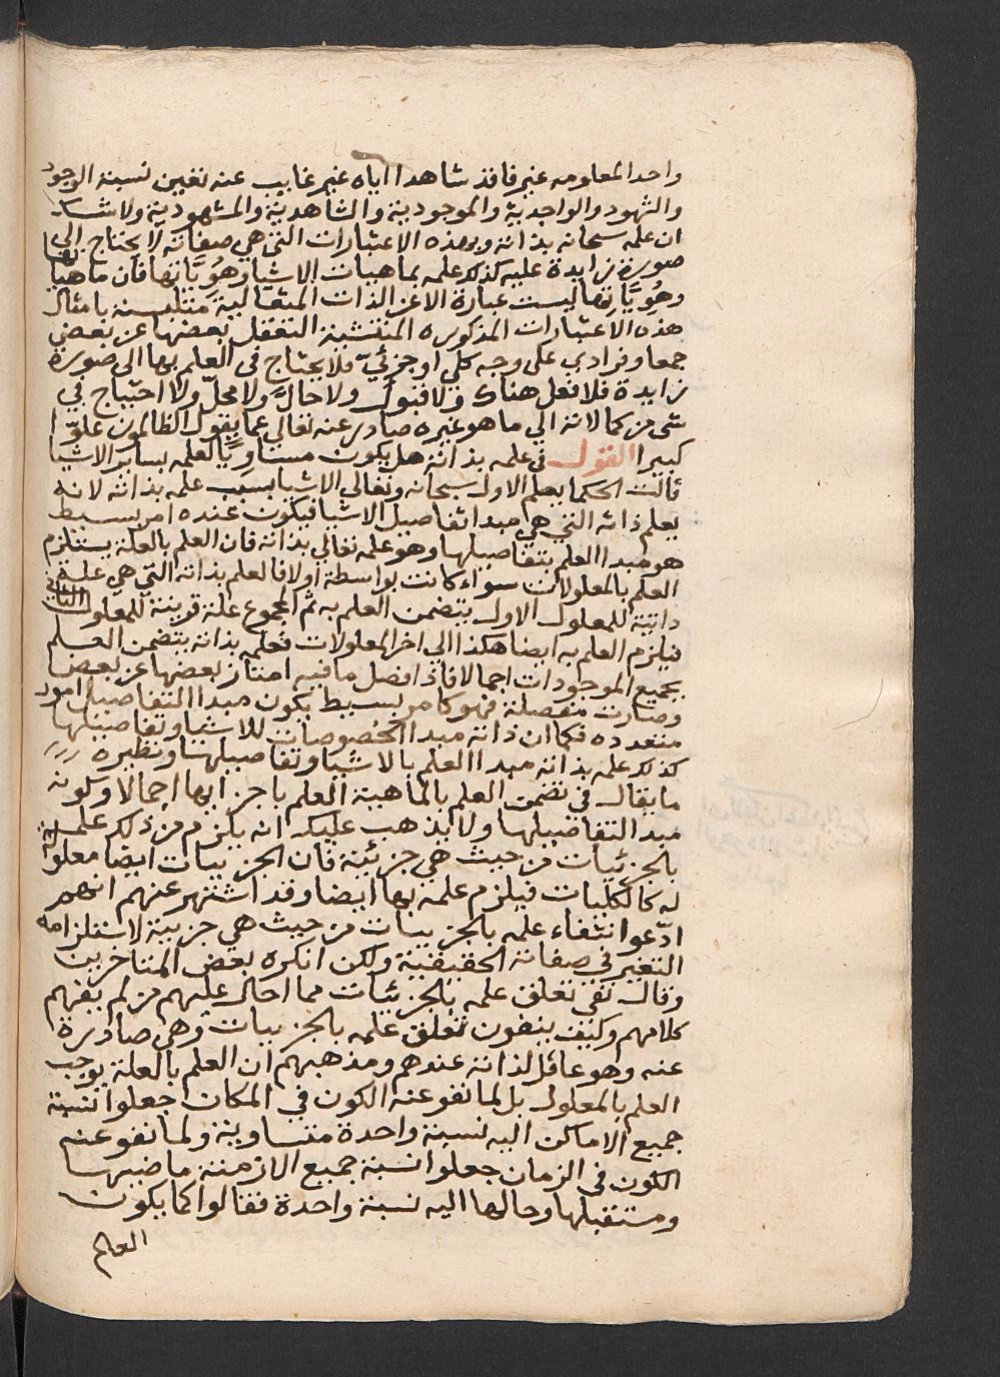 واحدا لمعلومه غير فاقد شاهدا اياه غير غايب عنه تعين نسبة الوجود
والشهود والواجدية والموجودية والشاهدية والمشهودية ولا شك
ان علمه سبحانه بذاته وبهذه الاعتبارات التي هي صفاته لا يحتاج الى
صورة زايدة عليه كذلك علمه بماهيات الاشيا وهُويَّاتها فان ماهياتها
وهُويَّاتها ليست عبارة الا عن الذات المتعالية متلبسة بامثال
هذه الاعتبارات المذكوره المنتشية التعقل بعضها عن بعض
جمعا وفرادي على وجه كلي او جزئيّ فلا يحتاج في العلم بها الى صورة
زايدة فلا فعل هناك ولا قبول ولا حالّ ولا محلّ ولا احتياج في
شي من كمالاته الي ما هو غيره صادر عنه تعالي عما يقول الظالمون علوّا
كبيرا القول في علمه بذاته هل يكون مساويًا لعلمه بساير الاشيا
قالت الحكما يعلم الاول سبحانه وتعالي الاشيا بسبب علمه بذاته لانه
يعلم ذاته التي هي مبدا تفاصيل الاشيا فيكون عنده امر بسيط
هو مبدا العلم بتفاصيلها وهو علمه تعالي بذاته فان العلم بالعلة يستلزم
العلم بالمعلولات سواء كانت بواسطة او لا فالعلم بذاته التي هي علة
ذاتية للمعلول الاول يتضمن العلم به ثم المجموع علة قريبة للمعلول الثاني
فيلزم العلم به ايضا هكذا الي اخر المعلولات فعلمه بذاته يتضمن العلم
بجميع الموجودات اجمالا فاذا فصل ما فيه امتاز بعضها عن بعض
وصارت مفصلة فهو كامر بسيط يكون مبدا لتفاصيل امور
متعدده فكما ان ذاته مبدا لخصوصيات للاشيا وتفاصيلها
كذلك علمه بذاته مبدا العلم بالاشيا وتفاصيلها ونظيره
ما يقال في تضمن العلم بالماهية العلم باجزايها اجمالا وكونه
مبدا لتفاصيلها ولا يذهب عليك انه يلزم من ذلك علمه
بالجزئيات من حيث هي جزئية فان الجزييات ايضا معلولة
له كالكليات فيلزم علمه بها ايضا وقد اشتهر عنهم انهم
ادّعوا انتفاء علمه بالجزييات من حيث هي جزيية لاستلزامه
التغير في صفاته الحقيقية ولكن انكره بعض المتاخرين
وقال نفي تعلق علمه بالجزئيات مما احال عليهم من لم يفهم
كلامهم وكيف ينفون تعلق علمه بالجزييات وهي صادرة
عنه وهو عاقل لذاته عندهم ومذهبهم ان العلم بالعلة يوجب
العلم بالمعلول بل لما نفو عنه الكون في المكان جعلوا نسبة
جميع الاماكن اليه نسبة واحدة متساوية ولما نفو عنه
الكون في الزمان جعلوا نسبة جميع الازمنة ماضيها
ومستقبلها وحالها اليه نسبة واحدة فقالوا كما يكون
العالم